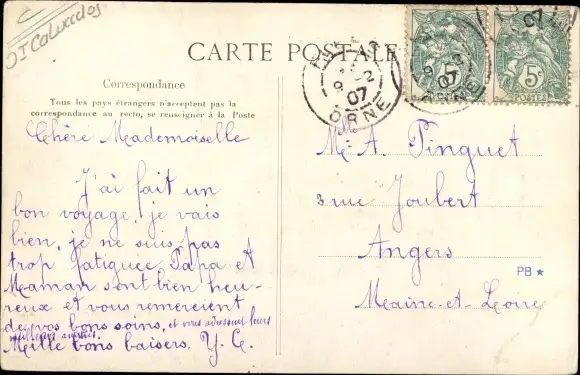 CARTE POSTALE
Correspondance
Tous les pays étrangers n'acceptent pas la
correspondance au recto, se renseigner à la Poste
Chère Mademoiselle
J'ai fait un
bon voyage, je vais
bien, je ne suis pas
trop fatiguée Papa et
Maman sont bien heu-
reux et vous remercient
de vos bons soins, et vous adressent leurs
meilleurs amitiés.
Mille bons baisers. Y. G.
Calvados
9
07
ORNE
07
ORNE
07
5c
POSTES
Mlle A. Pinguet
3 rue Joubert
Angers
Maine-et-Loire
PB ★